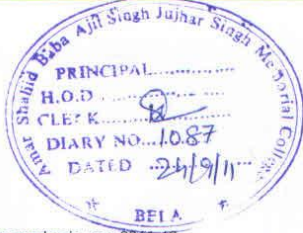 Amar Shahid Baba Ajit Singh Jujhar Singh Memorial College
PRINCIPAL
H.O.D
CLERK
DIARY NO...1087
DATED 24/9/11
BELA